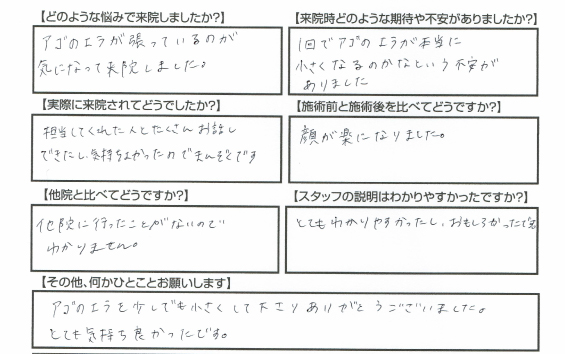 【どのような悩みで来院しましたか?】
アゴのエラが張っているのが
気になって来院しました。
【来院時どのような期待や不安がありましたか?】
1回でアゴのエラが本当に
小さくなるのかなという不安が
ありました
【実際に来院されてどうでしたか?】
担当してくれた人とたくさんお話し
できたし、気持ちよかったのでまんぞくです
【施術前と施術後を比べてどうですか?】
顔が楽になりました。
【他院と比べてどうですか?】
他院に行ったことがないので
わかりません。
【スタッフの説明はわかりやすかったですか?】
とてもわかりやすかったし、おもしろかったで
【その他、何かひとことお願いします】
アゴのエラを少しでも小さくして下さりありがとうございました。
とても気持ち良かったです。